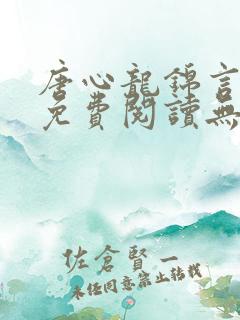 唐心龍錦言
免費閱讀無
佐倉賢一
未經同意禁止轉載